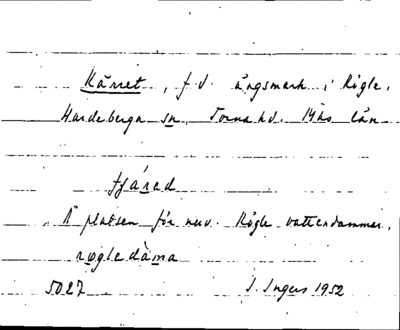 Kärret, f.d. ängsmark i Rögle,
Hardeberga sn, Torna hd. M-hs län
tjáred
På platsen för nuv. Rögle vattendammar,
røgledàma
5027 I. Ingers 1952